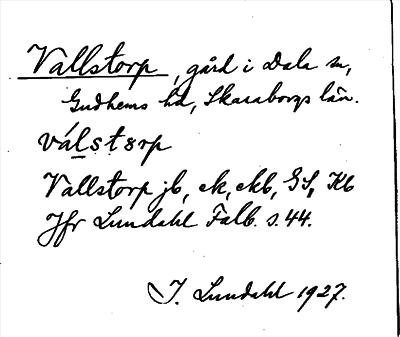 Vallstorp, gård i Dala sn,
Gudhems hd, Skaraborgs län.
válstsrp
Vallstorp jb, ek, ekb, GS, Kb
Jfr Lundahl Falb. s. 44.
I. Lundahl 1927.